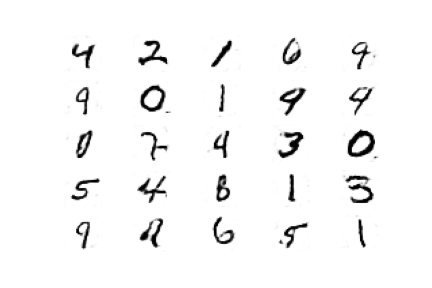 4 2 1 6 9
9 0 1 9 4
0 7 4 3 0
5 4 8 1 3
9 6 5 1